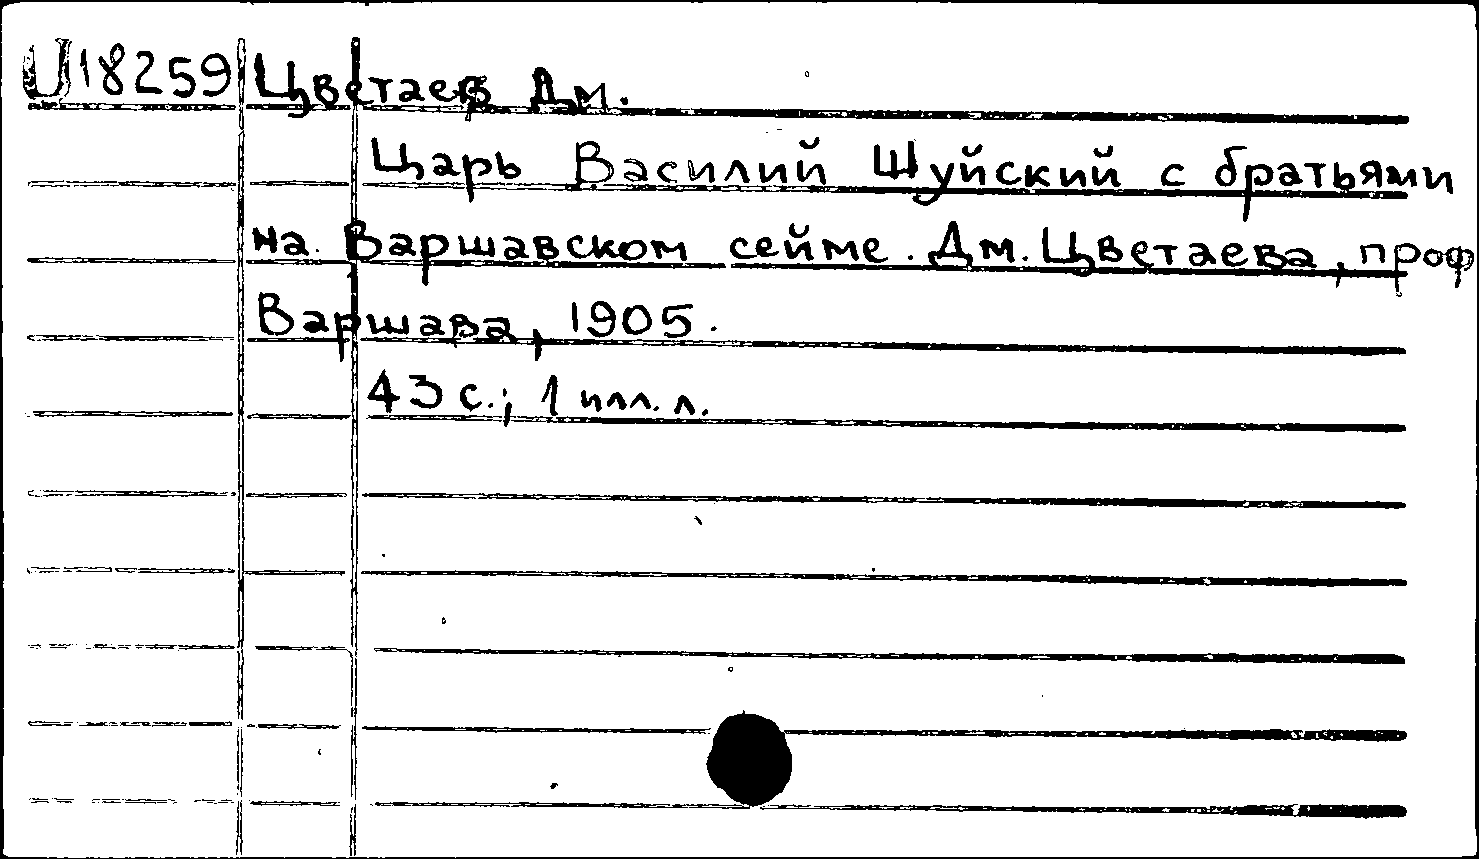 U18259 Цветаев Дм.
Царь Василий Шуйский с братьями
на Варшавском сейме. Дм. Цветаева, проф
Варшава, 1905.
43 с.; 1 илл. л.